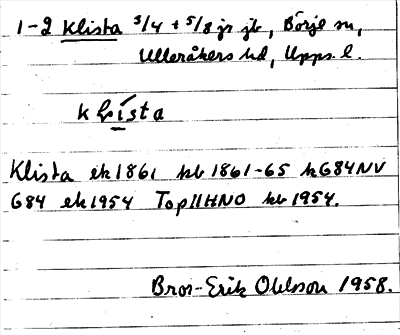 1-2 Klista 3/4 + 5/8 jr jb, Börje sn,
Ulleråkers hd, Upps. l.
klista
Klista ek 1861 kb 1861-65 k G84NV
G84 ek 1954 Top11HNO kb 1954.
Bror-Erik Ohlsson 1958.